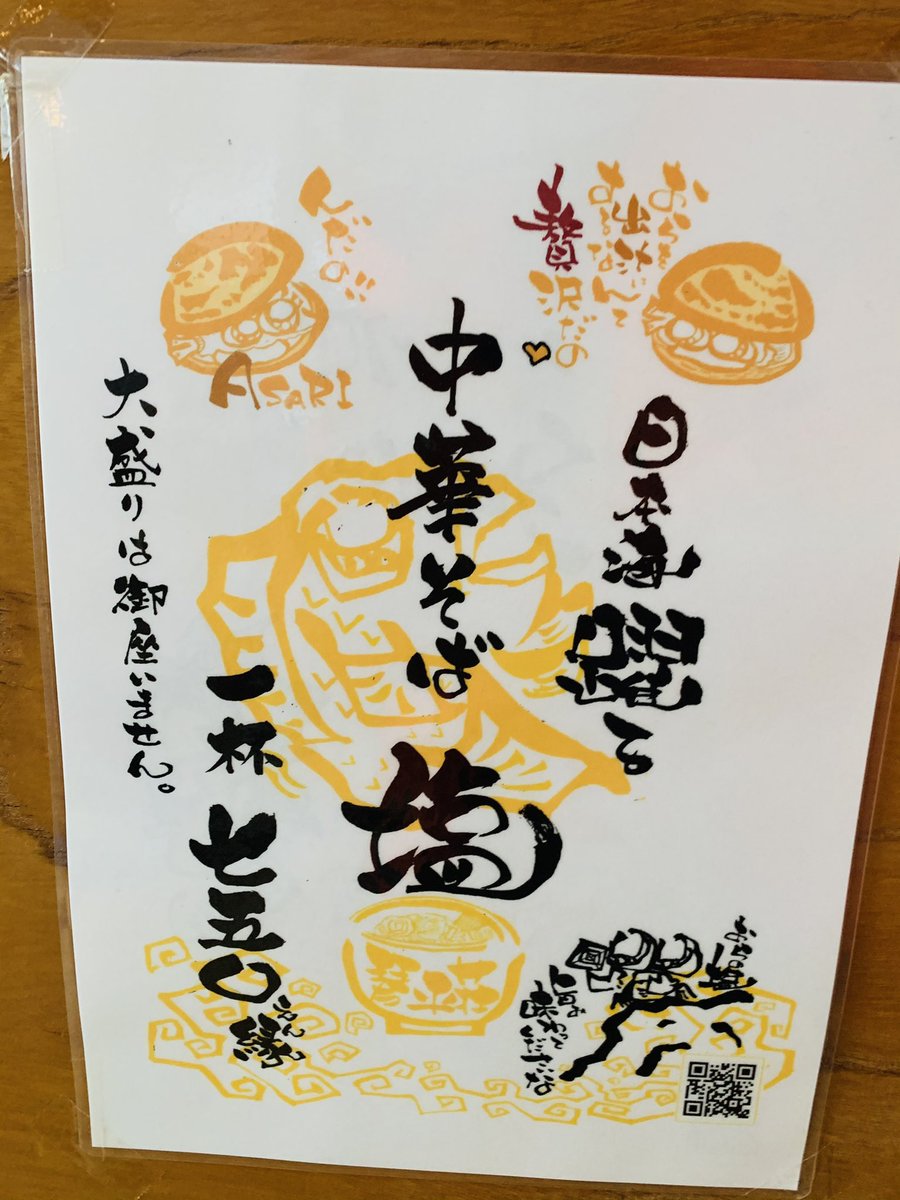 おらを
出汁だんて
するなんて
贅沢だの
んだの!!
ASARI
日本海躍る
中華そば 塩
一杯 七五〇縁
大盛りは御座いません。
琴平荘
旨み
味わって
くだこいな